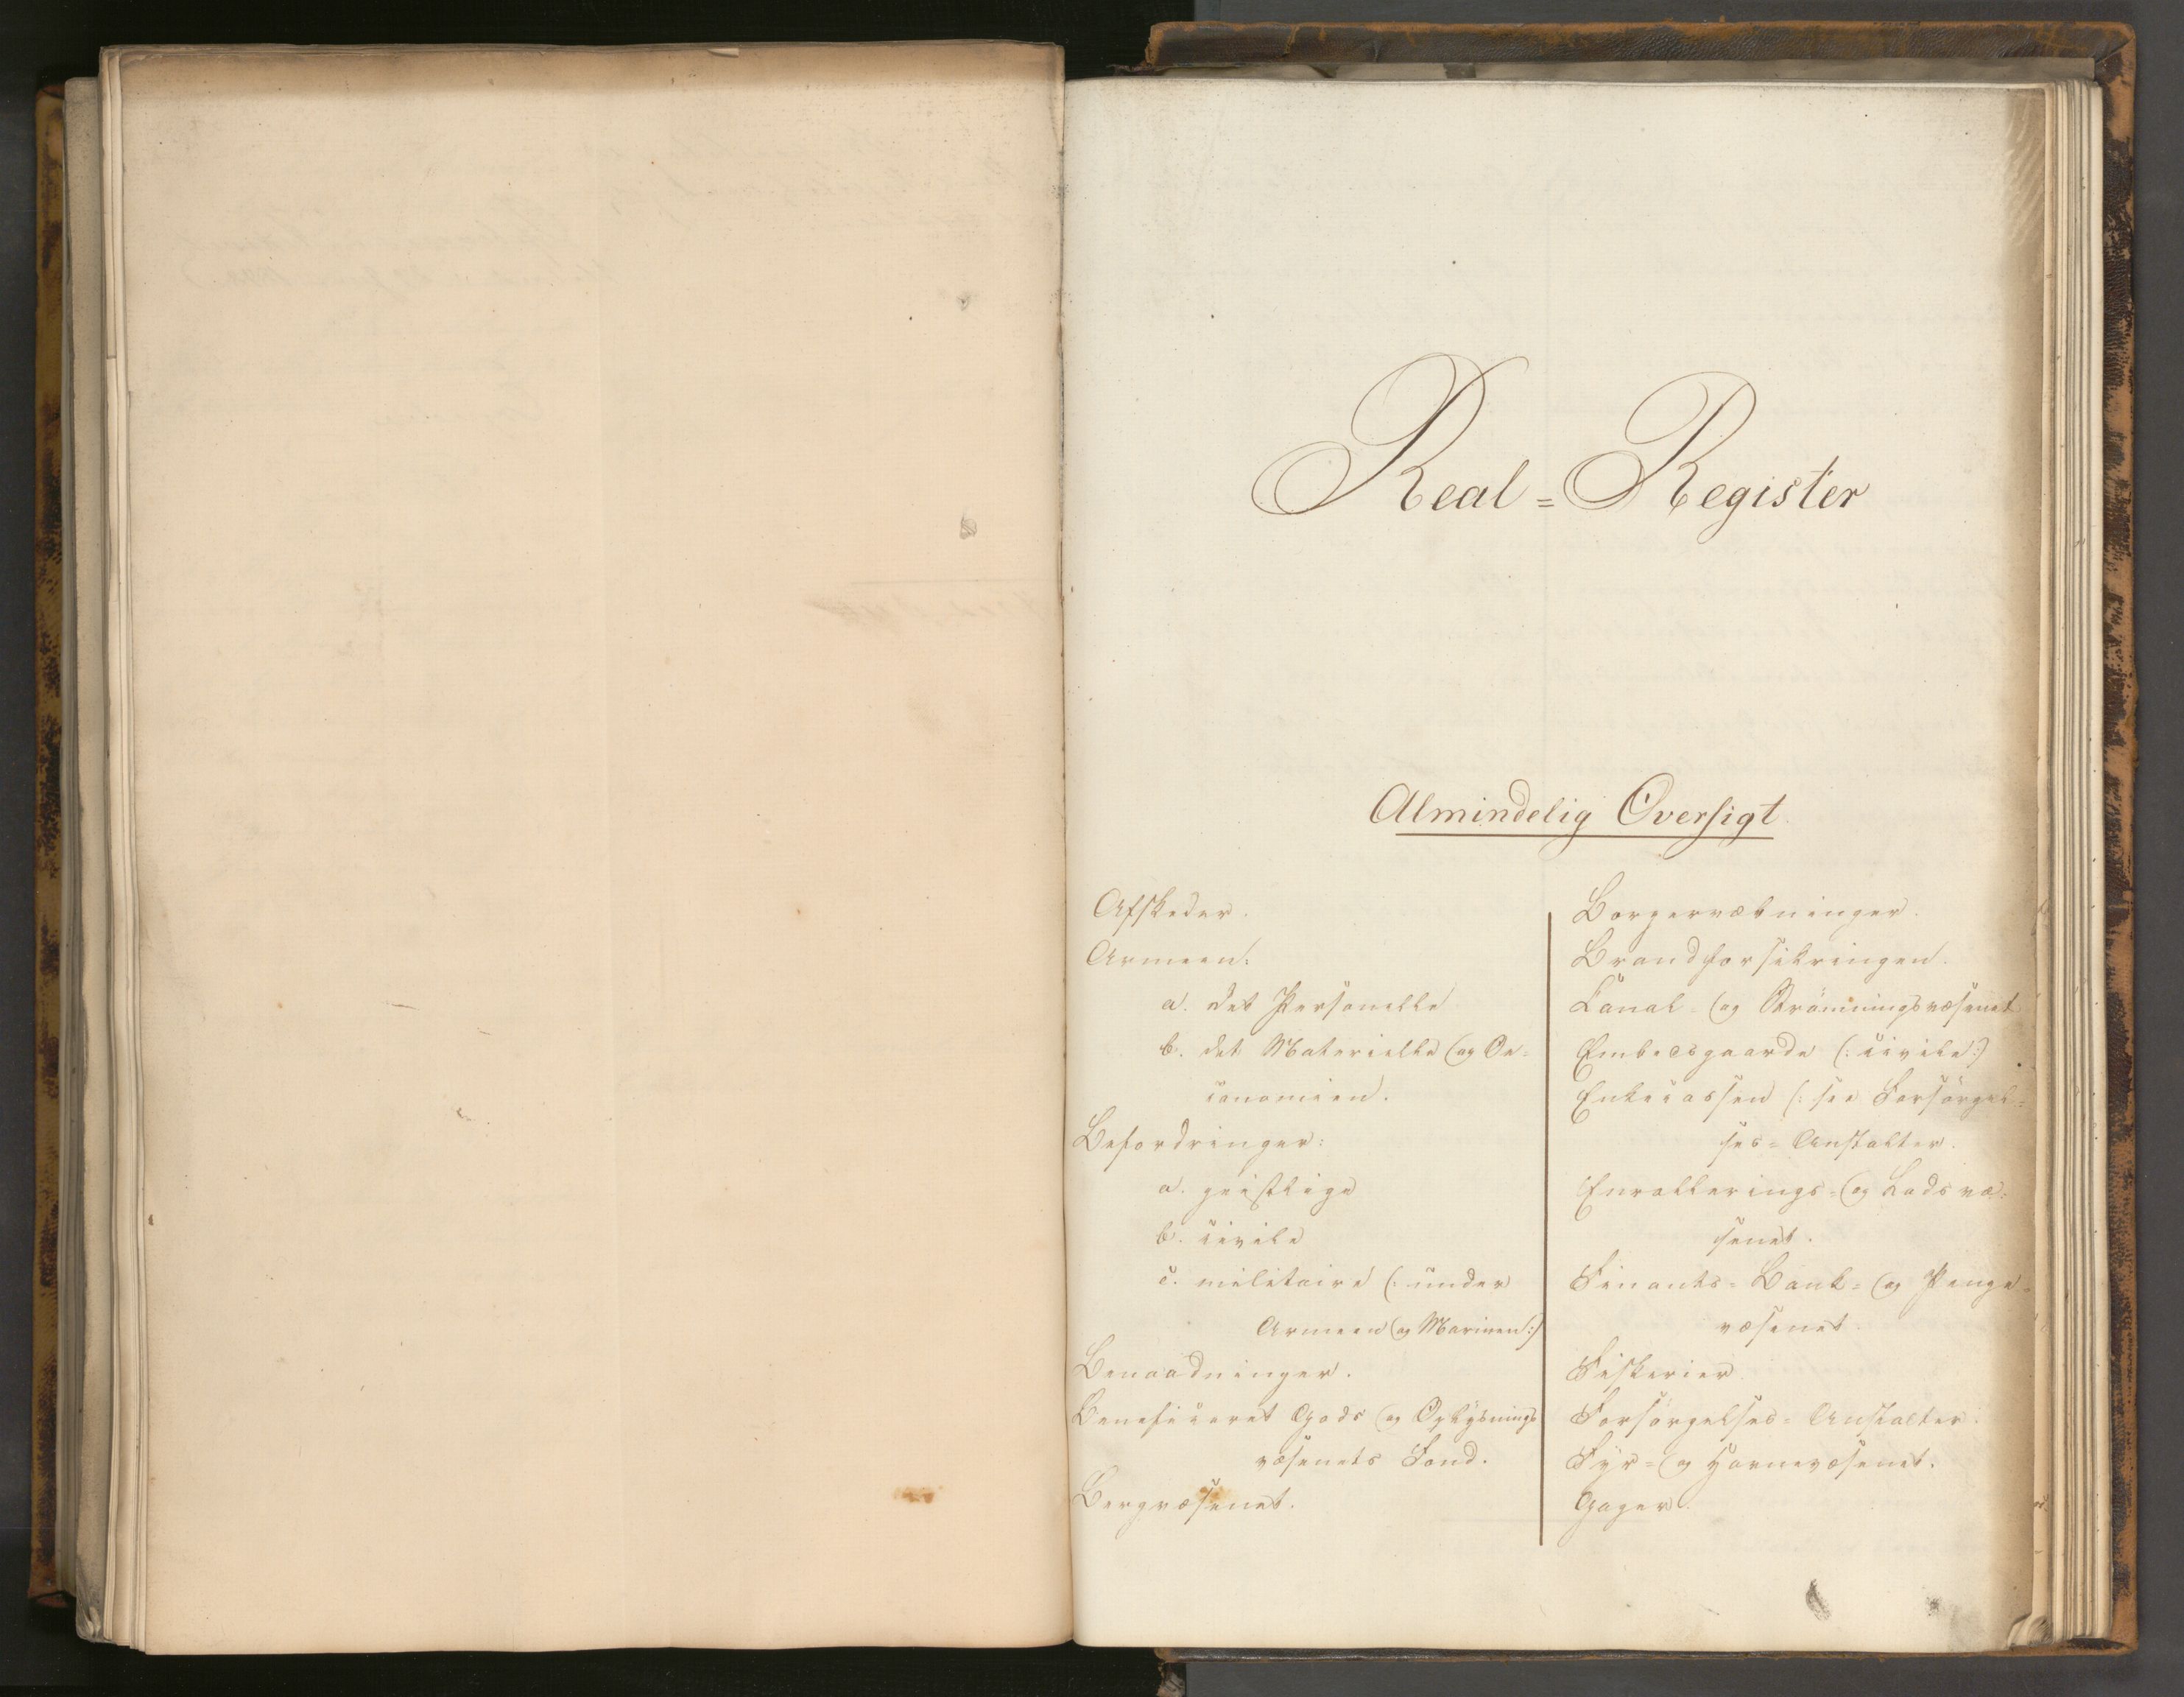 Real=Register
Almindelig Oversigt
Afskeder.
Armeen:
a. det Personelle
b. det Materielle og Oe=
conomien.
Befordringer:
a. geistlige
b. civile
c. militaire (: under
Armeen og Marinen :)
Benaadninger.
Beneficeret Gods og Oplysnings
væsenets Fond.
Bergvæsenet.
Borgervæbninger.
Brandforsikringen.
Canal= og Strömningsvæsenet
Embedsgaarde (: civile :)
Enkecassen (: see Forsörgel=
ses=Anstalter.
Enrollerings= og Lodsvæ=
senet.
Finants= Bank= og Penge=
væsenet
Fiskerier
Forsörgelses=Anstalter.
Fyr= og Havnevæsenet.
Gager.